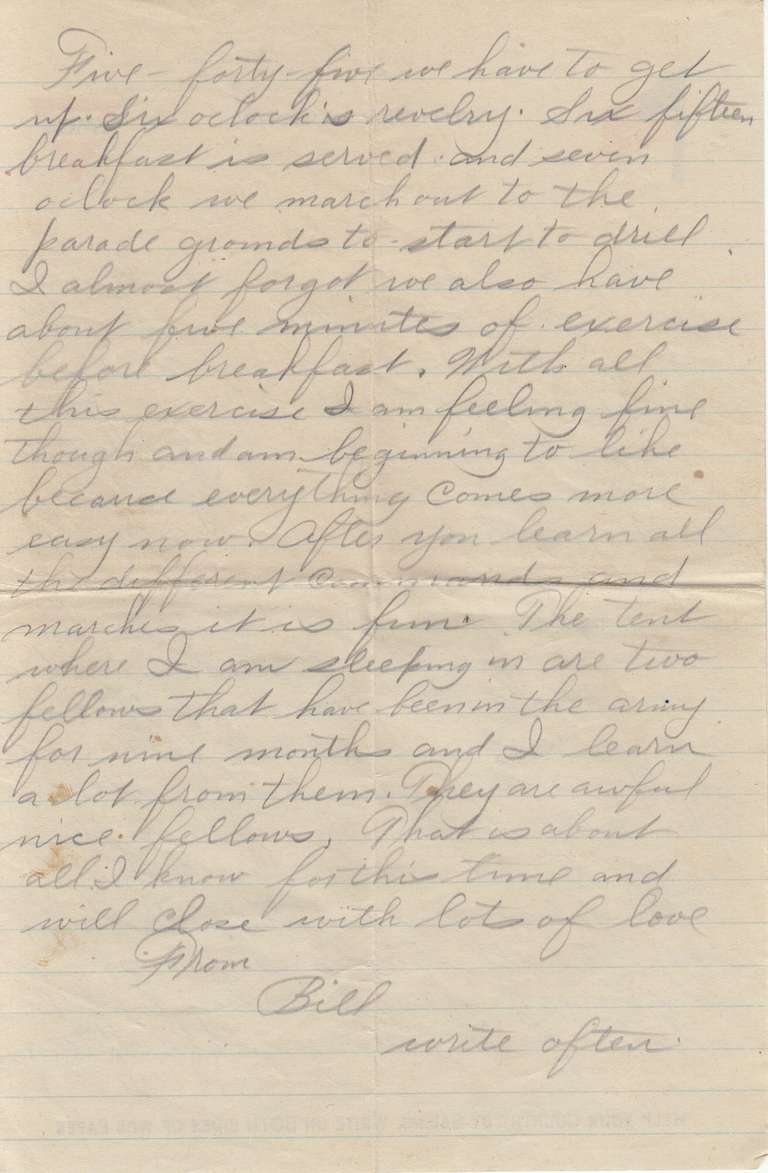 Five-forty-five we have to get
up. Six oclock is revelry. Six fifteen
breakfast is served. and seven
oclock we march out to the
parade grounds to start to drill.
I almost forgot we also have
about five minutes of exercise
before breakfast. With all
this exercise I am feeling fine
though and am beginning to like
because everything comes more
easy now. After you learn all
the different commands and
marches it is fun. The tent
where I am sleeping in are two
fellows that have been in the army
for nine months and I learn
a lot from them. They are awful
nice fellows. That is about
all I know for this time and
will close with lots of love
From
Bill
write often.
HELP YOUR COUNTRY BY SAVING. WRITE ON BOTH SIDES OF THIS PAPER